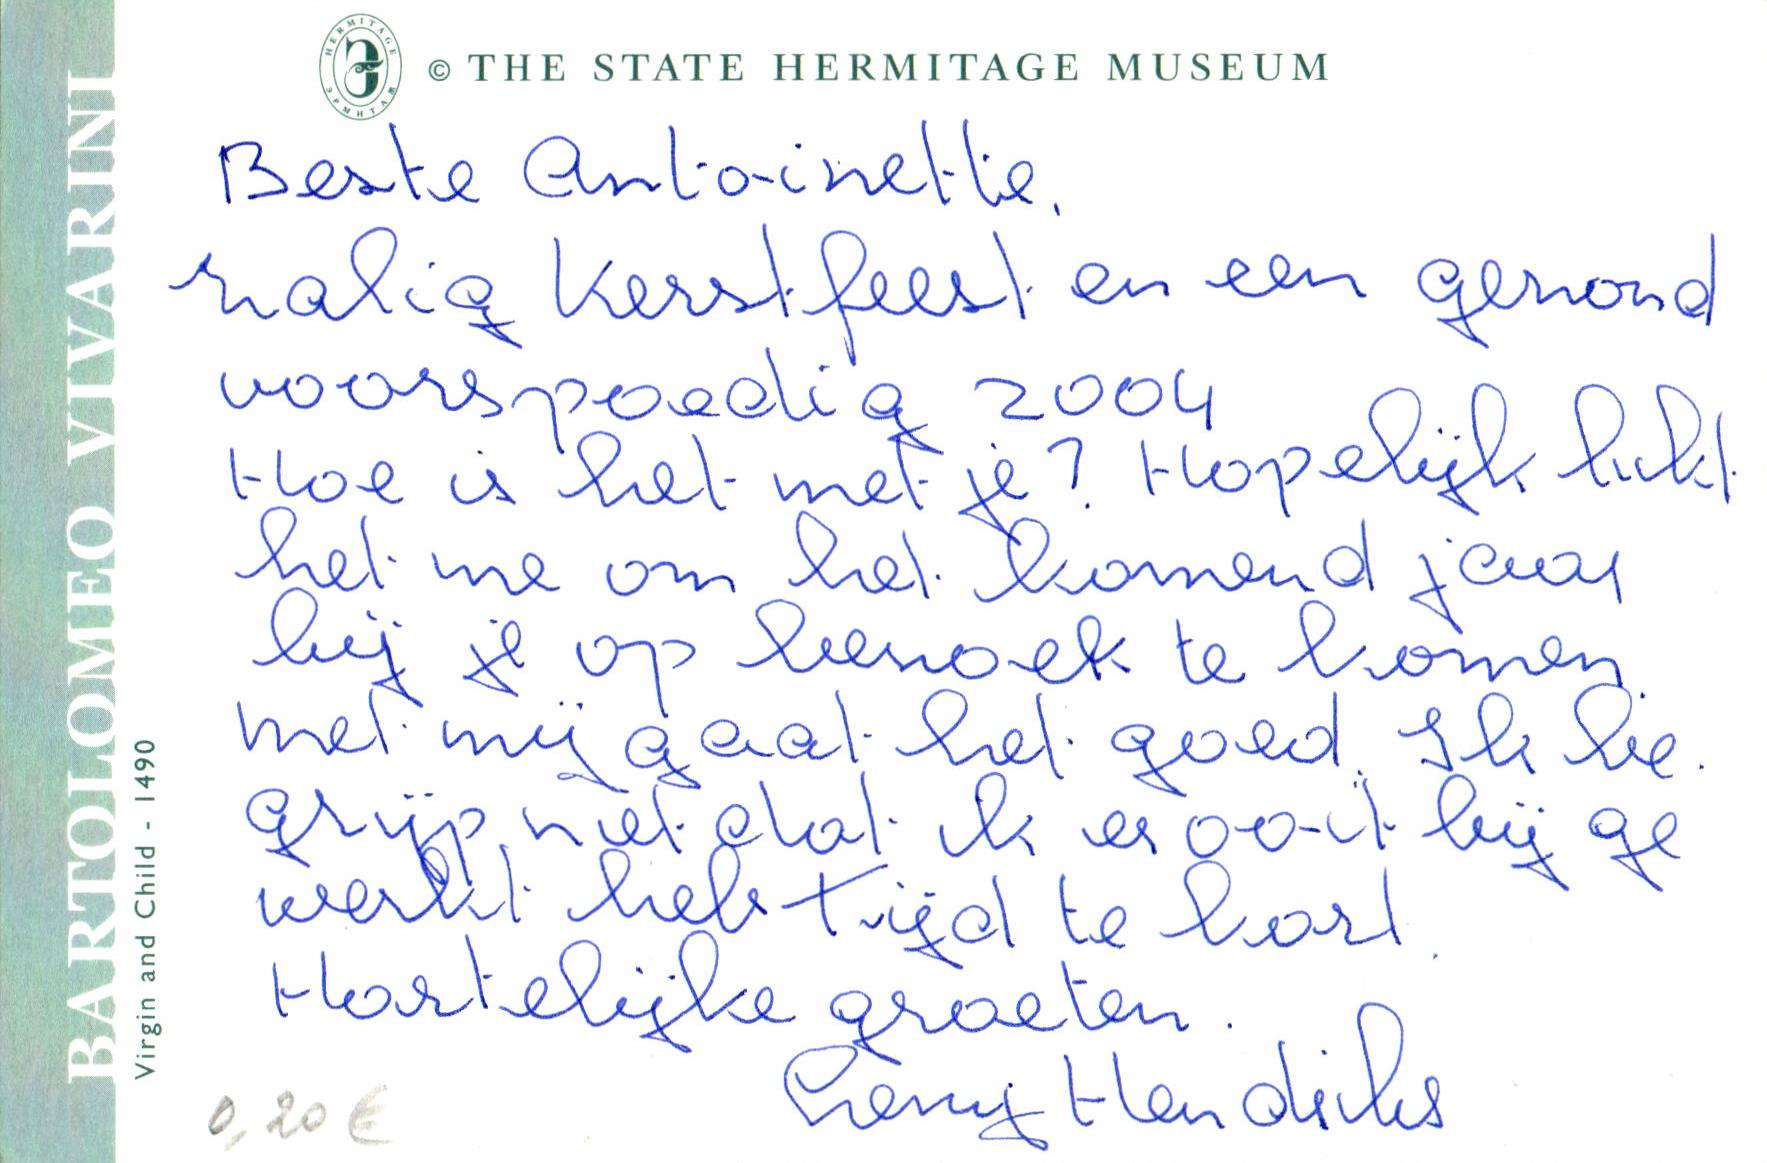 HERMITAGE
ЭРМИТАЖ
© THE STATE HERMITAGE MUSEUM
BARTOLOMEO VIVARINI
Virgin and Child - 1490
Beste Antoinette,
zalig Kerstfeest en een gezond
voorspoedig 2004
Hoe is het met je? Hopelijk lukt
het me om het komend jaar
bij je op bezoek te komen.
Met mij gaat het goed. Ik be-
grijp niet dat ik er ooit bij ge
werkt heb tijd te kort.
Hartelijke groeten.
Leny Hendriks
0,20 €